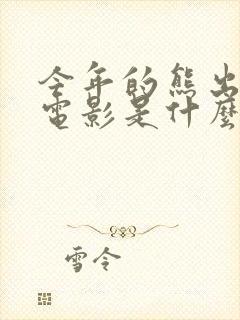 今年的熊出
電影是什麼
雪令